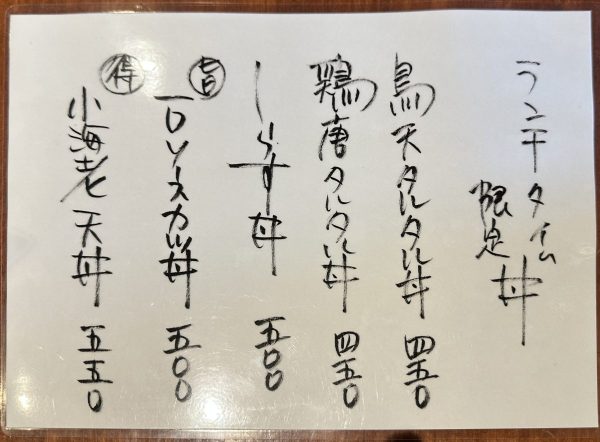 ランチタイム
限定丼
鳥天タルタル丼 四五〇
鶏唐タルタル丼 四五〇
しらす丼 五〇〇
一口ソースカツ丼 五〇〇
得 小海老天丼 五五〇